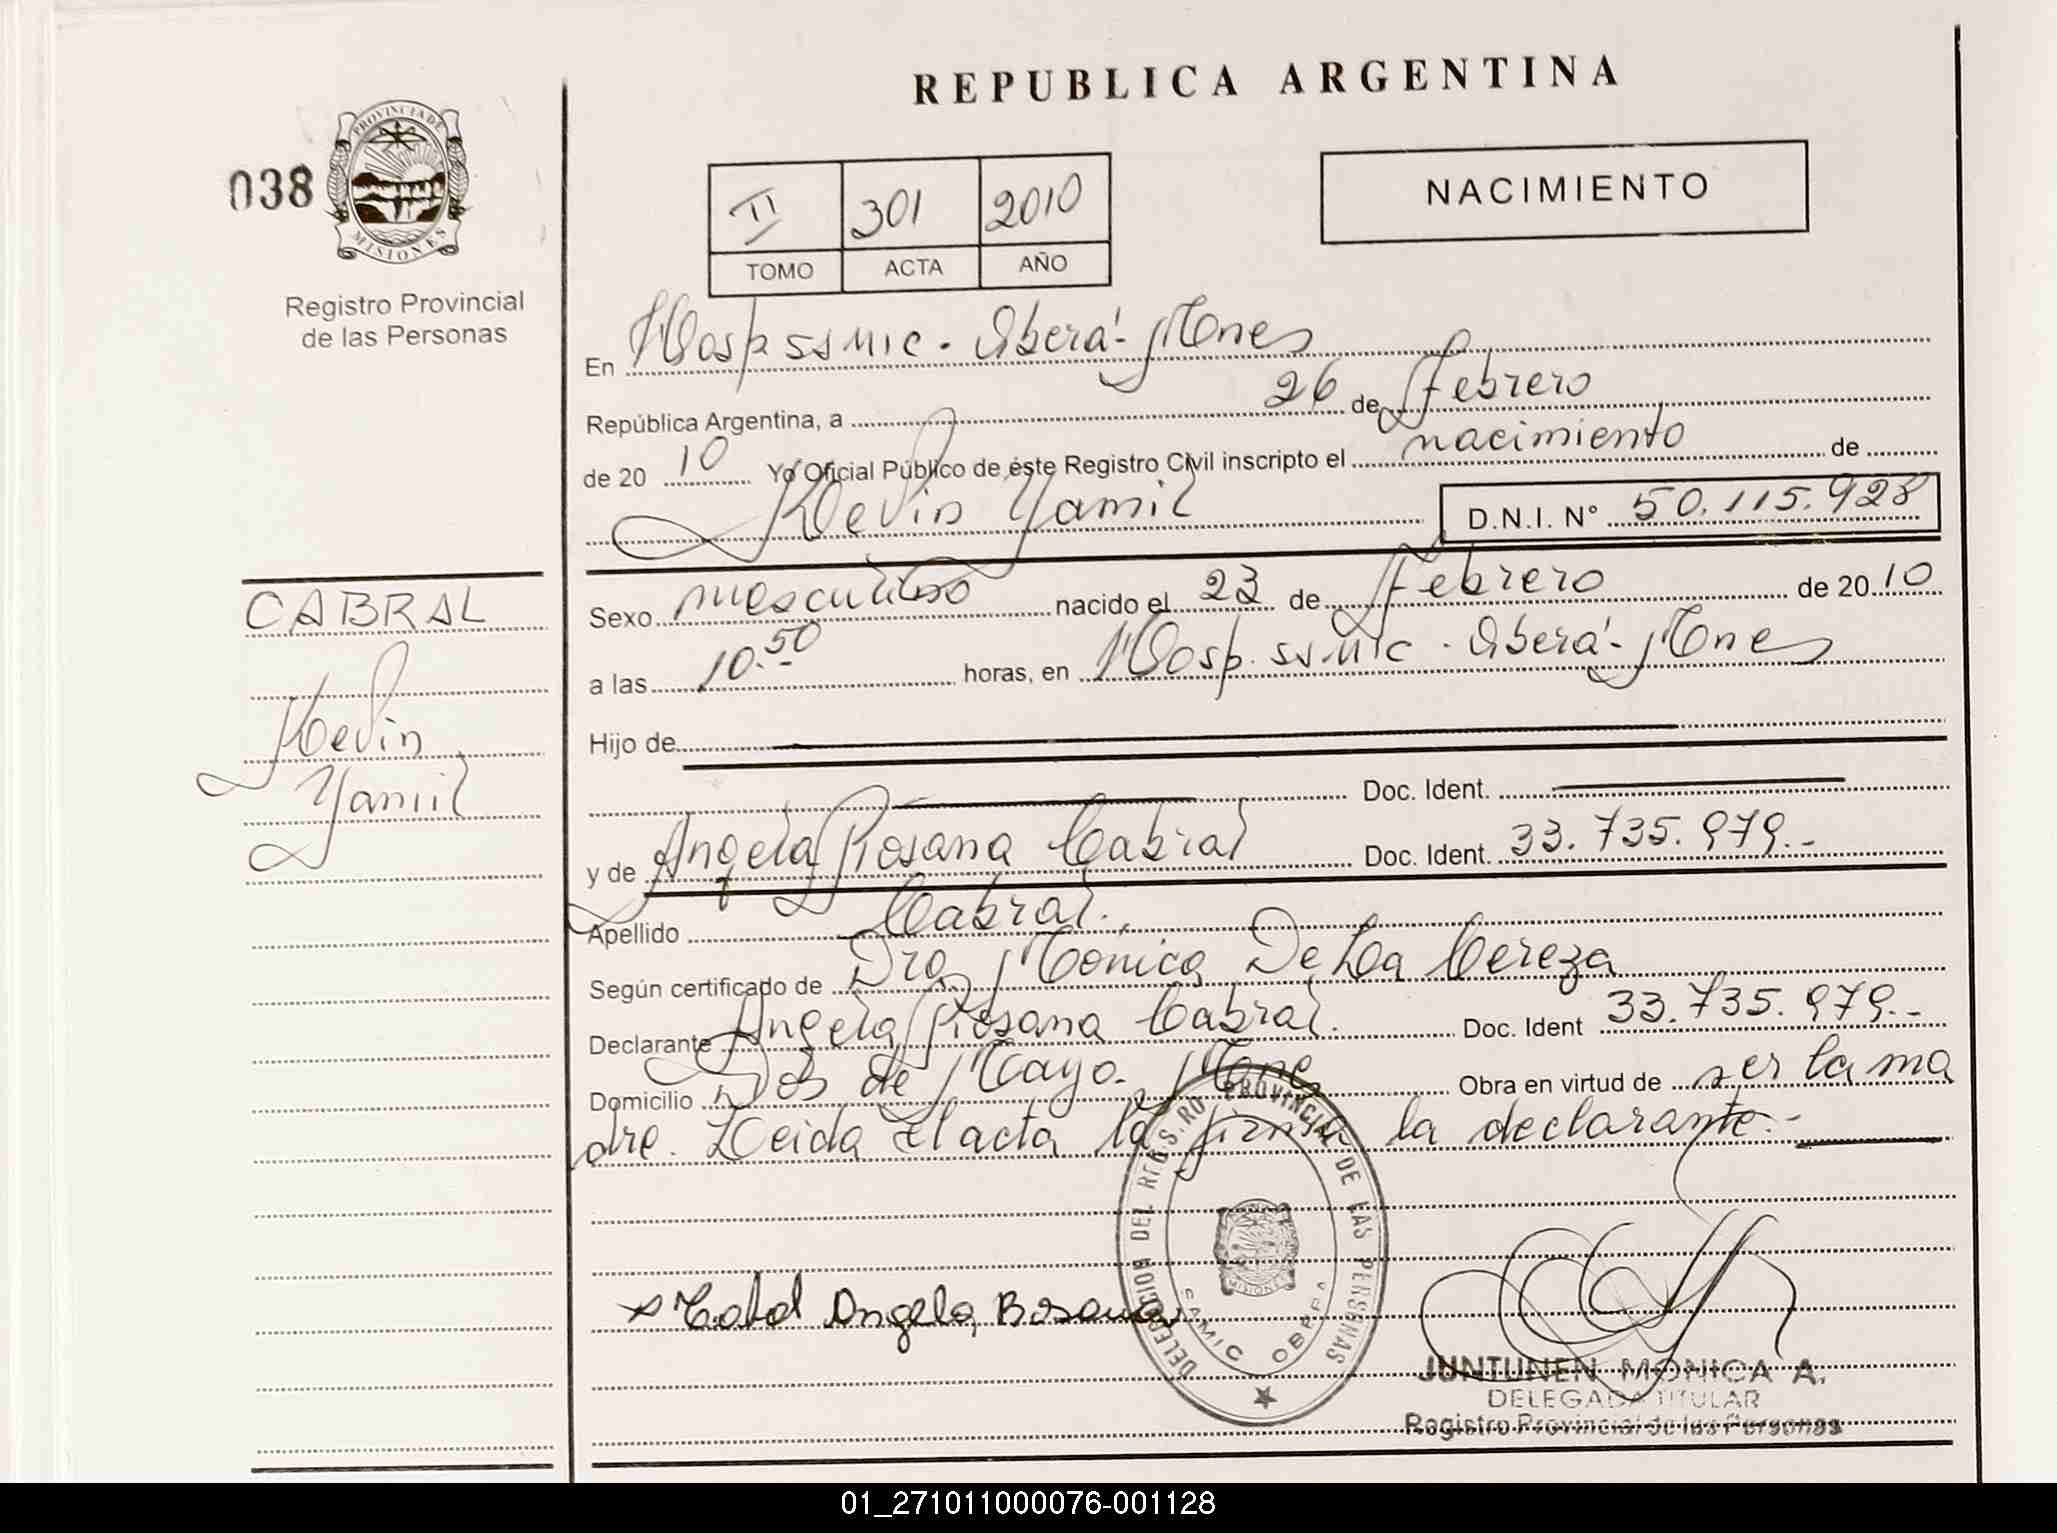 REPUBLICA ARGENTINA
038
PROVINCIA DE
MISIONES
Registro Provincial
de las Personas
II 301 2010
TOMO ACTA AÑO
NACIMIENTO
En Hosp. SSMIC. Oberá - Mnes
República Argentina, a 26 de febrero
de 20 10 Yo Oficial Público de éste Registro Civil inscripto el nacimiento de
Kevin Yamil D.N.I. N° 50.115.928
CABRAL
Kevin
Yamil
Sexo masculino nacido el 23 de febrero de 20 10
a las 10.50 horas, en Hosp. SSMIC. Oberá - Mnes
Hijo de
Doc. Ident.
y de Angela Rosana Cabral Doc. Ident. 33.735.979.-
Apellido Cabral.
Según certificado de Dra Mónica De La Cereza
Declarante Angela Rosana Cabral. Doc. Ident 33.735.979.-
Domicilio Dos de Mayo. Mnes Obra en virtud de ser la ma
dre. Leida el acta la firma la declarante.-
DELEGACION DEL REGISTRO PROVINCIAL DE LAS PERSONAS
MISIONES
SAMIC OBERA
Angela Rosana
JUNTUNEN MONICA A.
DELEGADA TITULAR
Registro Provincial de las Personas
01_271011000076-001128